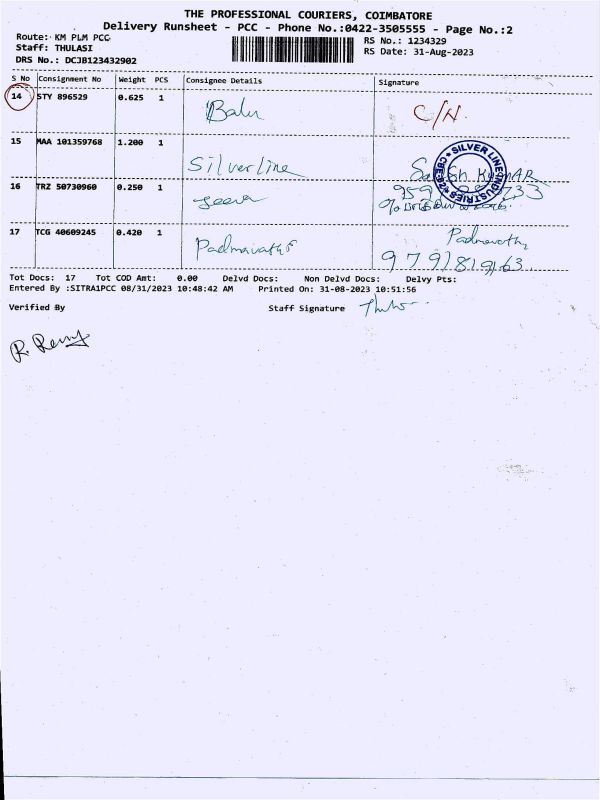 THE PROFESSIONAL COURIERS, COIMBATORE
Delivery Runsheet - PCC - Phone No.:0422-3505555 - Page No.:2
Route: KM PLM PCC
RS No.: 1234329
Staff: THULASI
RS Date: 31-Aug-2023
DRS No.: DCJB123432902
S No Consignment No Weight PCS Consignee Details Signature
14 STY 896529 0.625 1 Balu C/N.
15 MAA 101359768 1.200 1 Silverline
SILVER LINE INDUSTRIES
16 TRZ 50730960 0.250 1 Jeeva
17 TCG 40609245 0.420 1 Padmavathi Padmavathi
9791819163
Tot Docs: 17 Tot COD Amt: 0.00 Delvd Docs: Non Delvd Docs: Delvy Pts:
Entered By :SITRA1PCC 08/31/2023 10:48:42 AM Printed On: 31-08-2023 10:51:56
Verified By Staff Signature